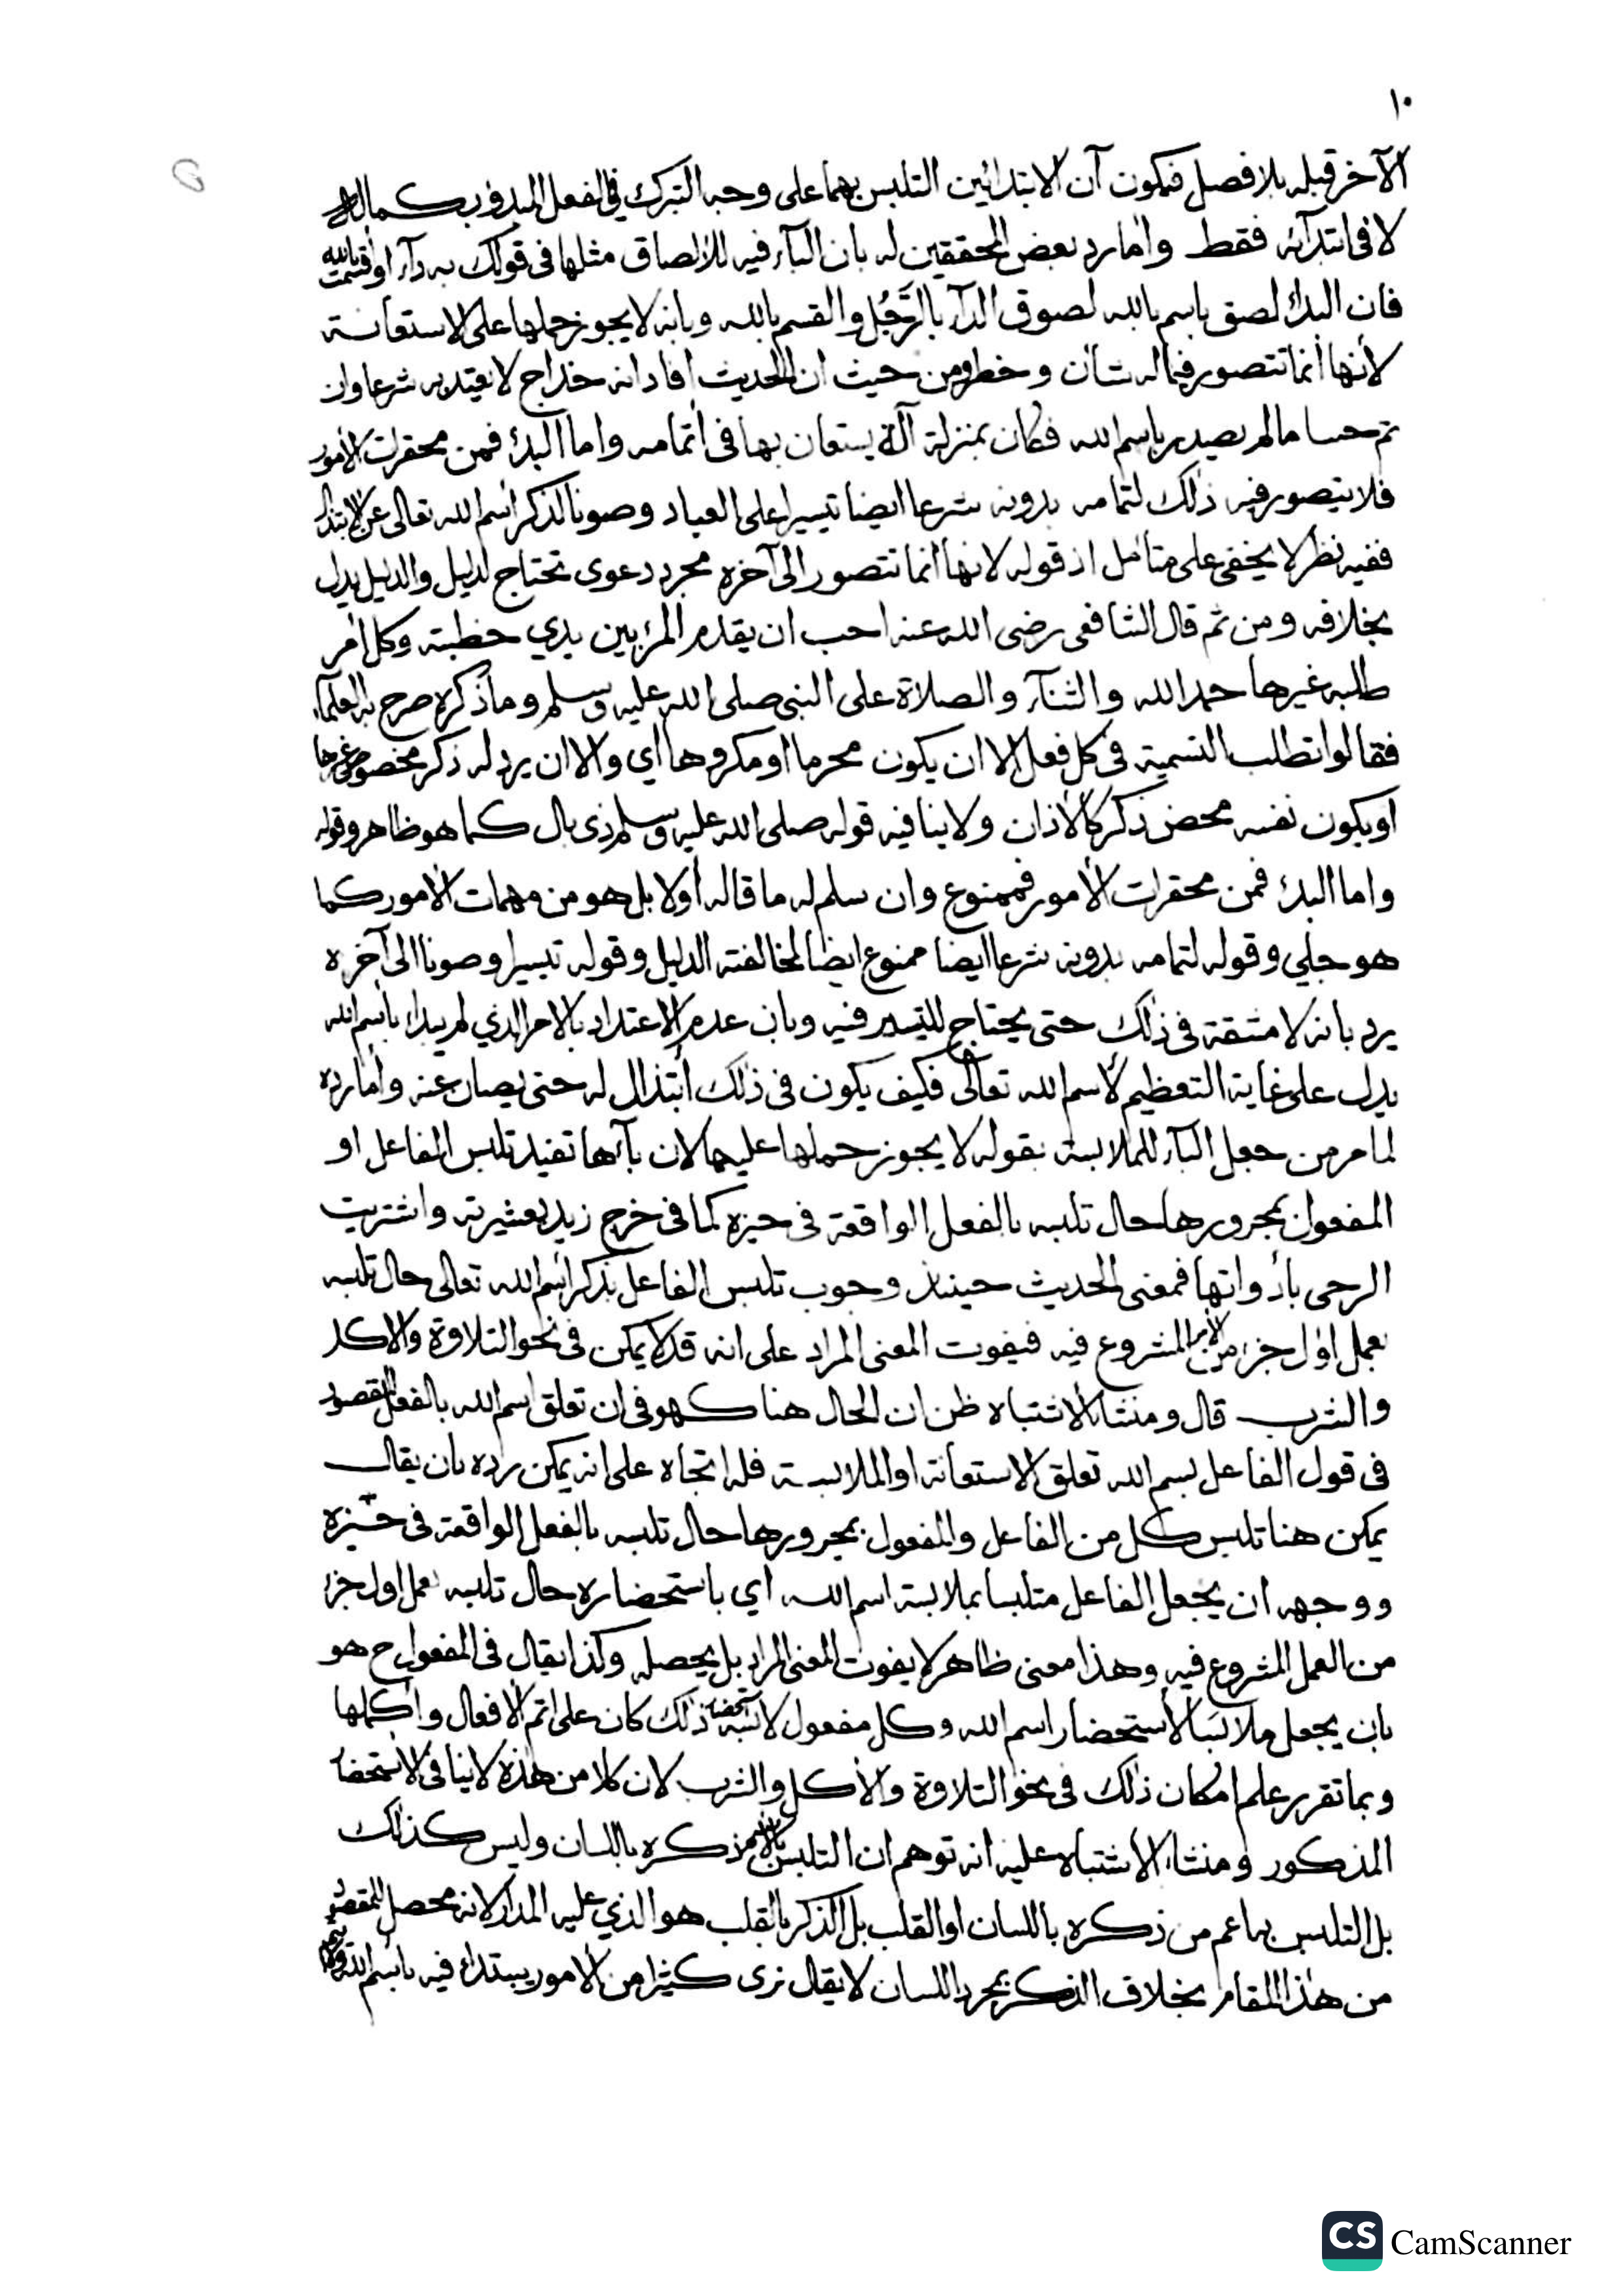 ١٠
الآخر قبله بلا فصل فيكون آن الابتدائين التلبس بهما على وجه التبرك في الفعل المبدوء بكماله
لا في ابتدآئه فقط واما رد بعض المحققين له بان البآء فيه للالصاق مثلها في قولك به دآء او اقسمت بالله
فان البدأ لصق باسم الله لصوق الدآء بالرَّجُل والقسم بالله وبانه لا يجوز حملها على الاستعانة
لأنها انما تتصور فيما له شأن وخطر ومن حيث ان الحديث افاد انه خداج لا يعتد به شرعا وان
تم حسا مالم يصدر باسم الله فكان بمنزلة آلة يستعان بها في اتمامه واما البدئ فمن محقرات الأمور
فلا يتصور فيه ذلك لتمامه بدونه شرعا ايضا تيسيرا على العباد وصونا لذكر اسم الله تعالى عن الابتذال
ففيه نظر لا يخفى على متأمل اذ قوله لانها انما تتصور الى آخره مجرد دعوى تحتاج لدليل والدليل يدل
بخلافه ومن ثم قال الشافعي رضى الله عنه احب ان يقدم المرء بين يدي خطبته وكل امر
طلبه غيرها حمد الله والثنآء والصلاة على النبي صلى الله عليه وسلم وما ذكره صرح به العلمآء
فقالوا تطلب التسمية في كل فعل الا ان يكون محرما او مكروها اي والا ان يرد له ذكر مخصوص غيرها
او يكون نفسه محض ذكر كالأذان ولا ينافيه قوله صلى الله عليه وسلم ذى بال كما هو ظاهر وقوله
واما البدئ فمن محقرات الأمور فممنوع وان سلم له ما قاله أولا بل هو من مهمات الأمور كما
هو جلي وقوله لتمامه بدونه شرعا ايضا ممنوع ايضا لمخالفته الدليل وقوله تيسيرا وصونا الى آخره
يرد بانه لا مشقة في ذلك حتى يحتاج للتيسير فيه وبان عدم الاعتداد بالامر الذي لم يبدأ باسم الله
يدل على غاية التعظيم لأسم الله تعالى فكيف يكون في ذلك ابتذال له حتى يصان عنه واما رده
لما مر من جعل البآء للملابسة بقوله لا يجوز حملها عليها لان بآءها تفيد تلبس الفاعل او
المفعول بمجرورها حال تلبسه بالفعل الواقعة في حيزه كما في خرج زيد بعشيرته واشتريت
الرحى بأدواتها فمعنى الحديث حينئذ وجوب تلبس الفاعل بذكر اسم الله تعالى حال تلبسه
بعمل اول جزء من الأمر المشروع فيه فيفوت المعنى المراد على انه قد لا يمكن في نحو التلاوة والاكل
والشرب قال ومنشأ الاشتباه ظن ان الحال هنا كهو في ان تعلق اسم الله بالفعل المقصود
في قول الفاعل بسم الله تعلق الاستعانة او الملابسة فله اتجاه على انه يمكن رده بان يقال
يمكن هنا تلبس كل من الفاعل والمفعول بمجرورها حال تلبسه بالفعل الواقعة في حيزه
ووجهه ان يجعل الفاعل متلبسا بملابسة اسم الله اي باستحضاره حال تلبسه بعمل اول جزء
من العمل المشروع فيه وهذا معنى ظاهر لا يفوت المعنى المراد بل يحصله وكذا يقال في المفعول ح هو
بان يجعل ملابسا لأستحضار اسم الله وكل مفعول لابسه استحضار ذلك كان على اتم الأفعال واكملها
وبما تقرر علم امكان ذلك في نحو التلاوة والأكل والشرب لان كلا من هذه لا ينافى الأستحضار
المذكور ومنشاء الأشتباه عليه انه توهم ان التلبس ذكره باللسان وليس كذلك
بل التلبس بها اعم من ذكره باللسان او القلب بل الذكر بالقلب هو الذي عليه المدار لانه محصل للمقصود
من هذا المقام بخلاف الذكر بمجرد اللسان لا يقال نرى كثيرا من الامور يبتدأ فيه باسم الله
CS CamScanner